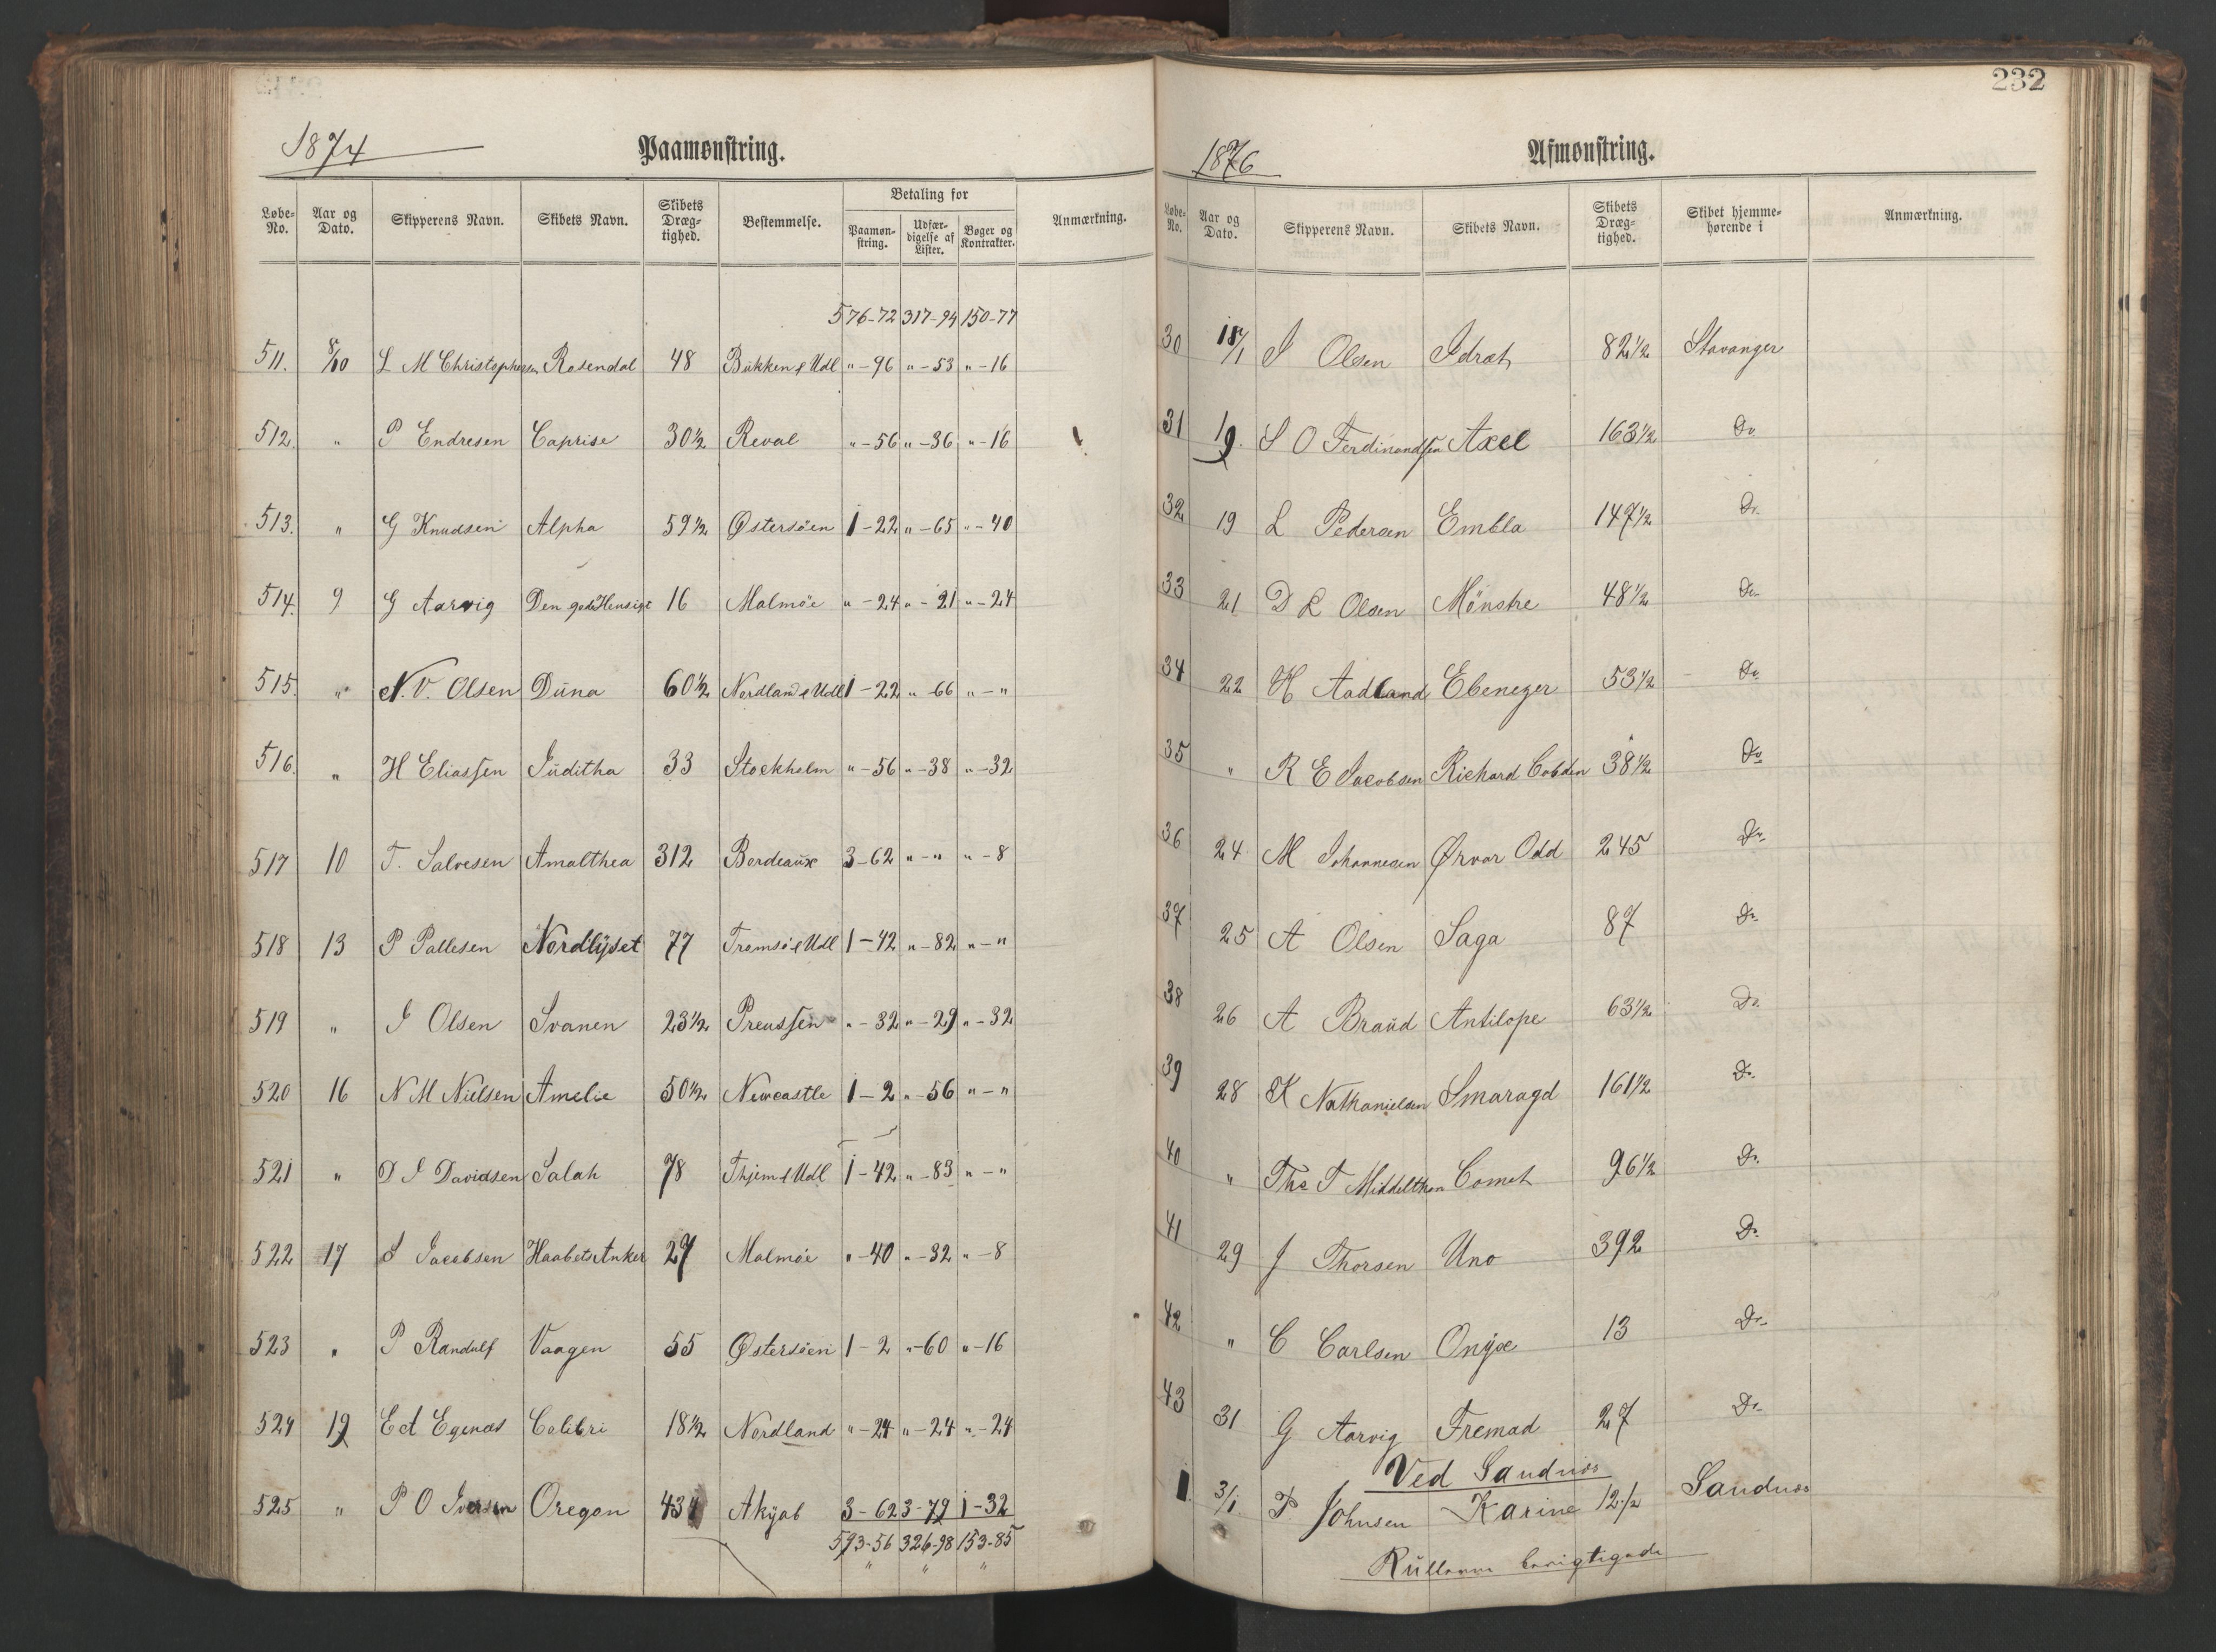 1874 Paamønstring.
Løbe-No. Aar og Dato. Skipperens Navn. Skibets Navn. Skibets Dræg-tighed. Bestemmelse. Betaling for Paamøn-string. Udfær-digelse af Lister. Bøger og Kontrakter. Anmærkning.
576-72 317-94 150-77
511. 8/10 L M Christophersen Rosendal 48 Bukken & Udl " - 96 " - 53 " - 16
512. " P Endresen Caprise 30 1/2 Reval " - 56 " - 36 " - 16
513. " G Knudsen Alpha 59 1/2 Østersöen 1 - 22 " - 65 " - 40
514. 9 G Aarvig Den gode Hensigt 16 Malmöe " - 24 " - 21 " - 24
515. " N. V. Olsen Düna 60 1/2 Nordland & Udl 1 - 22 " - 66 " - "
516. " H Eliassen Juditha 33 Stockholm " - 56 " - 38 " - 32
517 10 T. Salvesen Amalthea 312 Bordeaux 3 - 62 " - " " - 8
518 13 P Pallesen Nordlÿset 77 Tromsö & Udl 1 - 42 " - 82 " - "
519 " J Olsen Svanen 23 1/2 Preussen " - 32 " - 29 " - 32
520 16 N M Nielsen Amelie 50 1/2 Newcastle 1 - 2 " - 56 " - "
521 " D J Davidsen Salah 78 Thjem & Udl 1 - 42 " - 83 " - "
522 17 S Jacobsen Haabets Anker 27 Malmöe " - 40 " - 32 " - 8
523 " P Randulf Vaagen 55 Østersöen 1 - 2 " - 60 " - 16
524 19 E A Egenæs Colibri 18 1/2 Nordland " - 24 " - 24 " - 24
525 " P O Iversen Oregon 434 Akÿab 3 - 62 3 - 79 1 - 32
593-56 326-98 153-85
" " "
232
1876 Afmønstring.
Løbe-No. Aar og Dato. Skipperens Navn. Skibets Navn. Skibets Dræg-tighed. Skibet hjemme-hørende i Anmærkning.
30 18/1 J Olsen Idræt 82 1/2 Stavanger
31 19. S O Ferdinandsen Axel 163 1/2 Do
32 19 L Pedersen Embla 147 1/2 Do
33 21 D L Olsen Mönstre 48 1/2 Do
34 22 H Aadland Ebenezer 53 1/2 Do
35 " R E Jacobsen Richard Cobden 38 1/2 Do
36 24 M Johannesen Ørvar Odd 245 Do
37 25 A Olsen Saga 87 Do
38 26 A Braüd Antilope 63 1/2 Do
39 28 K Nathanielsen Smaragd 161 1/2 Do
40 " Ths T Middelthon Comet 96 1/2 Do
41 29 J Thorsen Uno 392 Do
42 " C Carlsen Onÿx 13 Do
43 31 G Aarvig Fremad 27 Do
Ved Sandnæs
1. 3/1. P. Johnsen Karine 12 1/2 Sandnæs
Rüllerne berigtigede